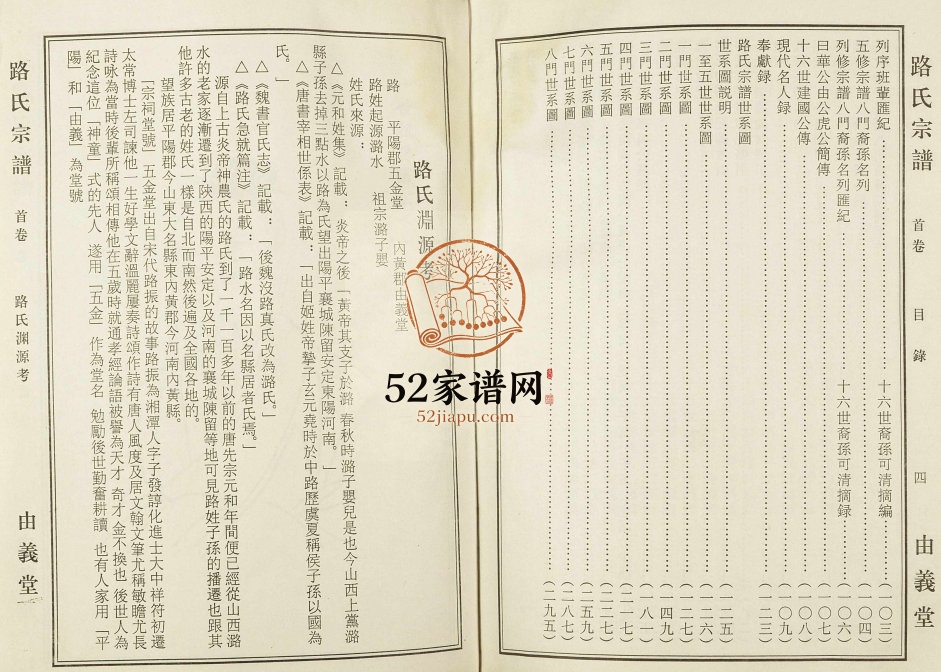 路氏宗譜 首卷 目錄 四 由義堂
列序班輩匯紀……十六世裔孫可清摘編……(一〇三)
五修宗譜八門裔孫名列……(一〇四)
列修宗譜八門裔孫名列匯紀……十六世裔孫可清摘録……(一〇六)
曰華公由公虎公簡傳……(一〇七)
十六世建國公傳……(一〇八)
現代名人録……(一〇九)
奉獻録……(一二三)
路氏宗譜世系圖
世系圖説明……(一二五)
一至五世世系圖……(一二六)
一門世系圖……(一二七)
二門世系圖……(一四九)
三門世系圖……(一八一)
四門世系圖……(二一七)
五門世系圖……(二二七)
六門世系圖……(二五九)
七門世系圖……(二八七)
八門世系圖……(二九五)
路氏淵源考
路 平陽郡五金堂 內黃郡由義堂
路姓起源潞水 祖宗潞子嬰
姓氏來源：
△《元和姓集》記載：炎帝之後「黃帝其支子於潞 春秋時潞子嬰兒是也今山西上黨潞
縣子孫去掉三點水以路為氏望出陽平襄城陳留安定東陽河南。」
△《唐書宰相世係表》記載：「出自姬姓帝摯子玄元堯時於中路歷虞夏稱侯子孫以國為
氏。」
△《魏書官氏志》記載：「後魏沒路真氏改為潞氏。」
△《路氏急就篇注》記載：「路水名因以名縣居者氏焉。」
源自上古炎帝神農氏的路氏到了一千一百多年以前的唐先宗元和年間便已經從山西潞
水的老家逐漸遷到了陝西的陽平安定以及河南的襄城陳留等地可見路姓子孫的播遷也跟其
他許多古老的姓氏一樣是自北而南然後遍及全國各地的。
望族居平陽郡今山東大名縣東內黃郡今河南內黃縣。
「宗祠堂號」五金堂出自宋代路振的故事路振為湘潭人字子發諄化進士大中祥符初遷
太常博士左司諫他一生好學文辭溫麗屢奏詩頌作詩有唐人風度及居文翰文筆尤稱敏瞻尤長
詩咏為當時後輩所稱頌相傳他在五歲時就通孝經論語被譽為天才 奇才 金不換也 後世人為
紀念這位「神童」式的先人 遂用「五金」作為堂名 勉勵後世勤奮耕讀 也有人家用「平
陽」和「由義」為堂號
路氏宗譜 首卷 路氏淵源考 由義堂
52家谱网
52jiapu.com